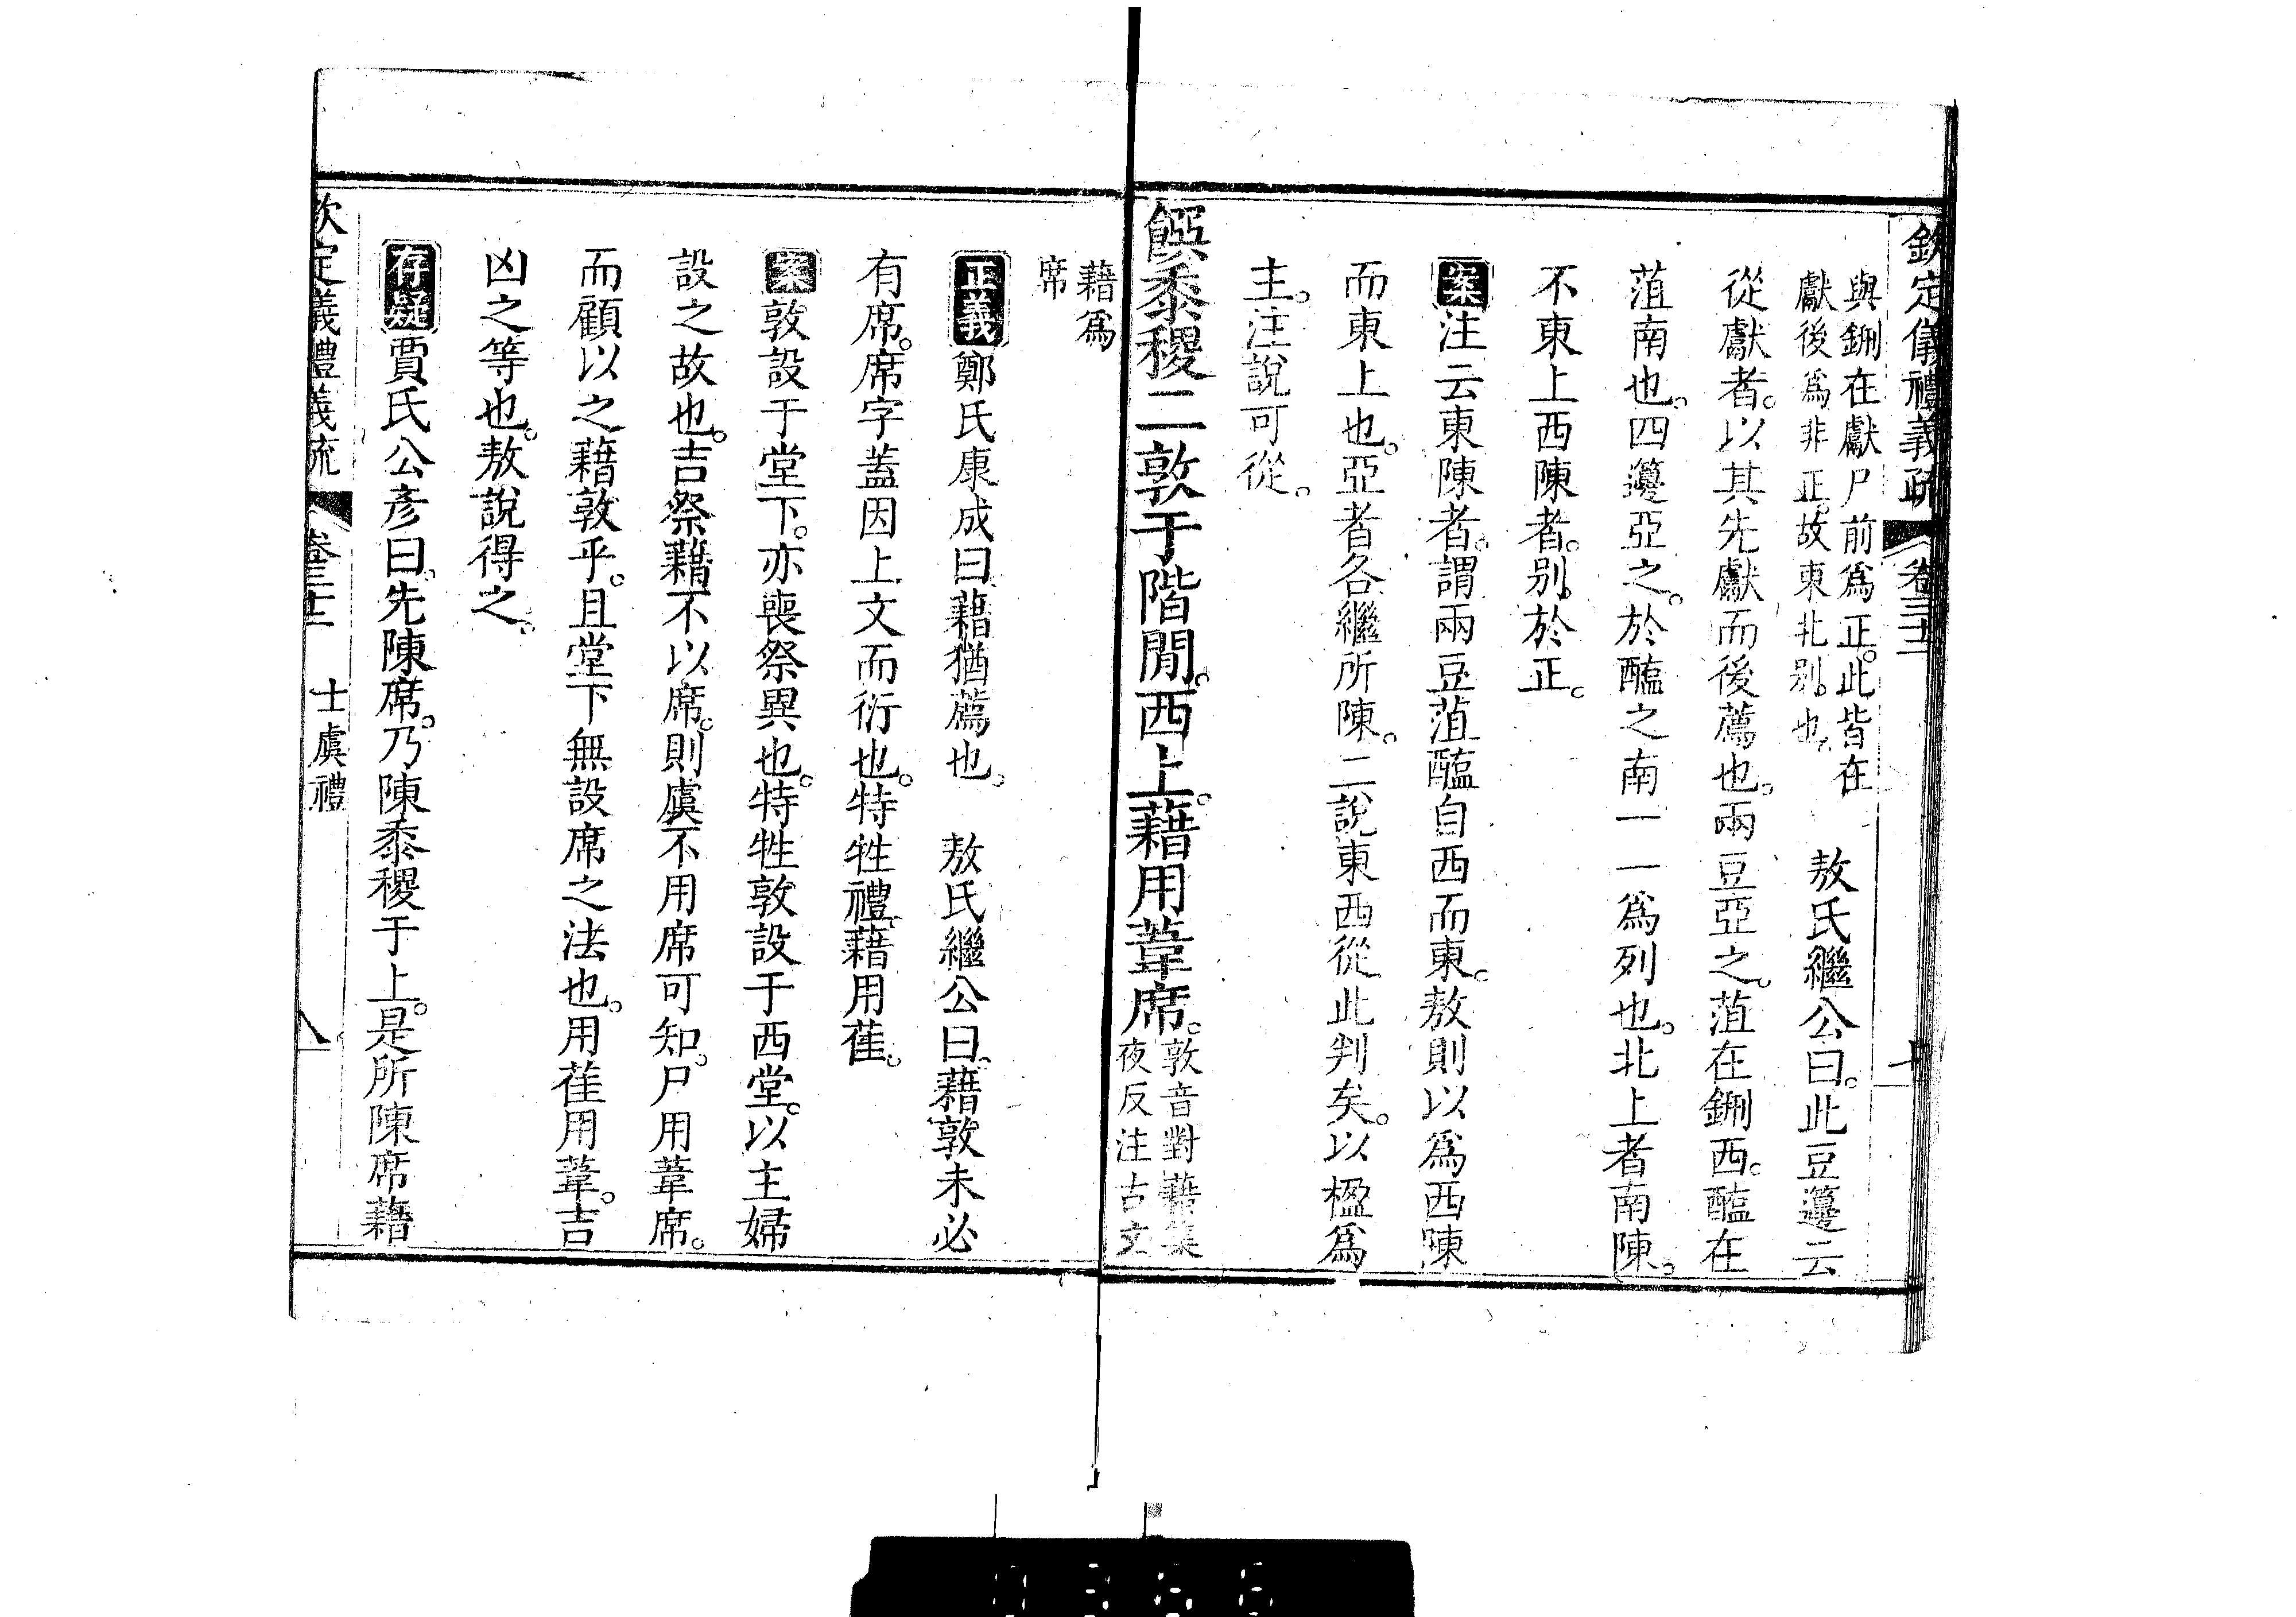 欽定儀禮義疏 卷三十二
與鉶在獻尸前爲正。此皆在
獻後爲非正。故東北别也。
敖氏繼公曰。此豆籩云
從獻者。以其先獻而後薦也。兩豆亞之。菹在鉶西。醢在
菹南也。四籩亞之。於醢之南一一爲列也。北上者南陳。
不東上西陳者。别於正。
案注云東陳者。謂兩豆菹醢自西而東。敖則以爲西陳
而東上也。亞者各繼所陳。二說東西從此判矣。以楹爲
主。注說可從。
饌黍稷二敦于階閒。西上。藉用葦席。
敦音對藉集
夜反注古文
藉爲
席
正義鄭氏康成曰。藉猶薦也。 敖氏繼公曰。藉敦未必
有席。席字蓋因上文而衍也。特牲禮。藉用萑。
案敦設于堂下。亦喪祭異也。特牲敦設于西堂。以主婦
設之故也。吉祭藉不以席。則虞不用席可知。尸用葦席。
而顧以之藉敦乎。且堂下無設席之法也。用萑用葦。吉
凶之等也。敖說得之。
存疑賈氏公彥曰。先陳席。乃陳黍稷于上。是所陳席藉
欽定儀禮義疏 卷三十二 士虞禮 八